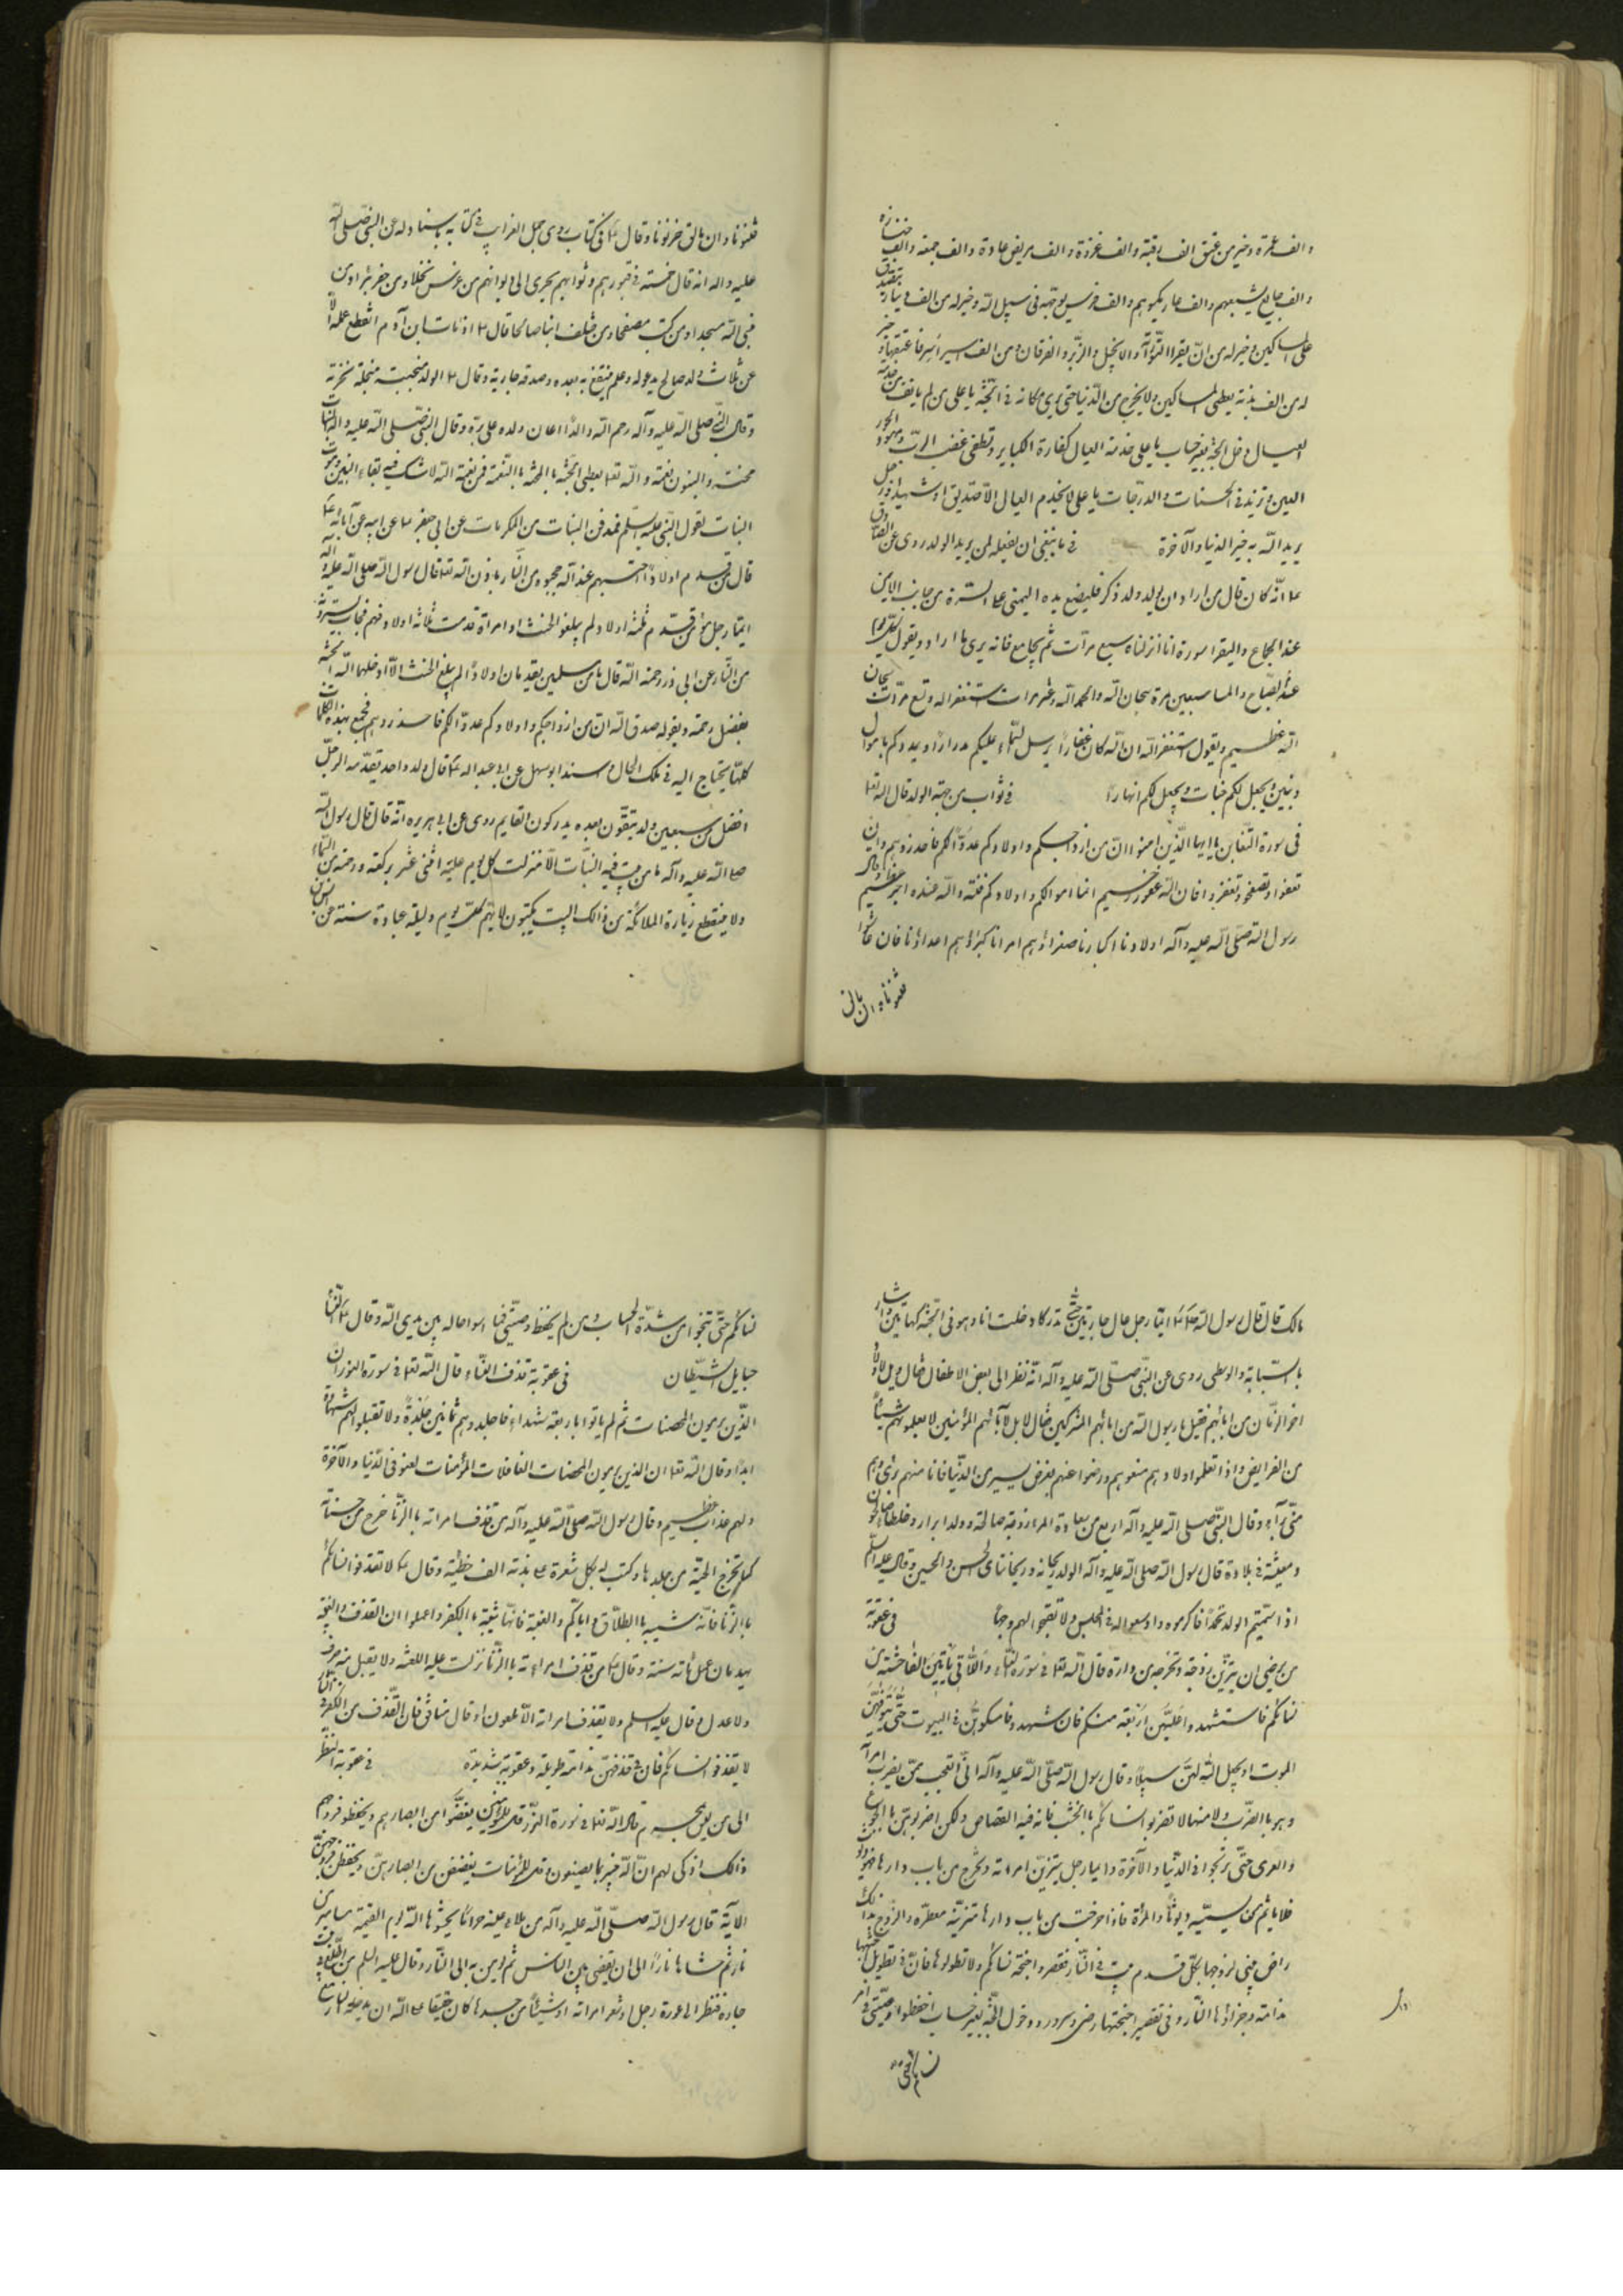 والف عمرة وخير من عتق الف رقبة والف غزوة والف مريض عادة والف جمعة والف جنازة
والف جايع يشبعهم والف عار يكسوهم والف فرس يوجهه فى سبيل الله وخير له من الف دينار يتصدق
على المساكين وخير له من ان يقرا التورية والانجيل والزبر والفرقان ومن الف اسير اسر فاعتقها وخير
له من الف بدنة يعطى المساكين ولا يخرج من الدنيا حتى يرى مكانه فى الجنة يا على من لم يانف من خدمة
العيال دخل الجنة بغير حساب يا على خدمة العيال كفارة الكباير وتطفى غضب الرب ومهور الحور
العين وتزيد فى الحسنات والدرجات يا على لا يخدم العيال الا صديق او شهيد او رجل
يريد الله به خير الدنيا والآخرة فى ما ينبغى ان يفعله لمن يريد الولد روى عن الصادق
انه كان قال من اراد ان يولد ولد ذكر فليضع يده اليمنى على السرة من جانب الايمن
عند الجماع واليقرا سورة انا انزلناه سبع مرات ثم يجامع فانه يرى ما اراد ويقول كل يوم
عند الصباح والمسا سبعين مرة سبحان الله والحمد الله وعشر مرات استغفر الله وتسع مرات سبحان
الله العظيم ويقول استغفر الله ان الله كان غفارا يرسل السماء عليكم مدرارا ويمددكم باموال
وبنين ويجعل لكم جنات ويجعل لكم انهارا فى ثواب من جهة الولد قال الله تعا
فى سورة التغابن يا ايها الذين امنوا ان من ازواجكم واولادكم عدوا لكم فاحذروهم وان
تعفوا وتصفحوا وتغفروا فان الله غفور رحيم انما اموالكم واولادكم فتنة والله عنده اجر عظيم وقال
رسول الله صلى الله عليه وآله اولادنا اكبادنا صغراؤهم امرانا كبراؤهم اعداؤنا فان عاشوا
فتنونا وان ماتوا
فتنونا وان ماتوا حزنونا وقال ع فى كتاب روى جمل الغرايب فى كتابه باسناده له عن النبى صلى الله
عليه واله انه قال خمسة فى قبورهم وثوابهم يجرى الى ديوانهم من غرس نخلا ومن حفر بئرا ومن
بنى الله مسجدا ومن كتب مصحفا ومن خلف ابنا صالحا قال ع اذا مات ابن آدم انقطع عمله الا
عن ثلاث ولد صالح يدعو له وعلم ينتفع به بعده وصدقة جارية وقال ع الولد
وقال النبى صلى الله عليه وآله رحم الله والدا اعان ولده على بره وقال النبى صلى الله عليه واله البنات
محنة والبنون نعمة والله تعا يعطى الجنة بالمحنة لا بالنعمة
البنات لقول النبى عليه السلم نعم دفن البنات من المكرمات عن ابى جعفر عا عن ابيه عن آبائه ع
قال من قدم اولادا احتسبهم عند الله حجبوه من النار باذن الله تعا قال رسول الله صلى الله عليه واله
ايما رجل مؤمن قدم ثلثة اولاد لم يبلغوا الحنث او امراة قدمت ثلاثة اولاد فهم حجاب يسترونه
من النار عن ابى ذر رحمة الله قال ما من مسلمين يقدمان اولادا لم يبلغ الحنث الا ادخلهما الله الجنة
بفضل رحمة وبقوله صدق الله ان من ازواجكم واولادكم عدوا لكم فاحذروهم فجمع بهذه الكلمات
كلما يحتاج اليه فى تلك الحال مسند ابو سهل عن ابى عبد الله ع قال ولد واحد يقدمه الرجل
افضل من سبعين ولد يبقون بعده يدركون القايم روى عن ابى هريره انه قال قال رسول الله
صلى الله عليه وآله ما من بيت فيه البنات الا نزلت كل يوم عليه اثنى عشر بركة ورحمة من السماء
ولا ينقطع زيارة الملائكة من ذالك البيت يكتبون لابيهم كل يوم وليلة عبادة سنة عن انس بن
مالك قال قال رسول الله ص ايما رجل عال جاريتين حتى تدركا دخلت انا وهو فى الجنة كهاتين واشار
بالسبابة والوسطى روى عن النبى صلى الله عليه وآله انه نظر الى بعض الاطفال فقال ويل لاولاد
اخر الزمان من ابائهم فقيل يا رسول الله من ابائهم المشركين فقال لا بل آبائهم المؤمنين لا يعلمونهم شيئا
من الفرايض واذا تعلموا اولادهم منعوهم ورضوا عنهم بعرض يسير من الدنيا فانا منهم برئ وهم
منى برآء وقال النبى صلى الله عليه وآله اربع من سعادة المرء زوجة صالحة وولد ابرار وخلطا صالحون
ومعيشة فى بلاده قال رسول الله صلى الله عليه وآله الولد ريحانه وريحانتاى الحسن والحسين وقال عليه السلم
اذا سميتم الولد محمدا فاكرموه واوسعوا له فى المجلس ولا تقبحوا لهم وجها فى عقوبة
من يرضى ان يتزين زوجة وتخرجه من داره قال الله تعا فى سورة النساء واللاتى ياتين الفاحشة من
نسائكم فاستشهدوا عليهن اربعة منكم فان شهدوا فامسكوهن فى البيوت حتى يتوفهن
الموت او يجعل الله لهن سبيلا وقال رسول الله صلى الله عليه وآله انى اتعجب ممن يضرب امرأته
وهو بالضرب اولى منها لا تضربوا نسائكم بالخشب فانه فيه القصاص ولكن اضربوهن بالجوع
والعرى حتى تربحوا فى الدنيا والآخرة وايما رجل يتزين امراته وتخرج من باب دارها فهو ديوث
فلا ياثم من يسميه ديوثا والمرأة فاذا خرجت من باب دارها متزينة معطرة والزوج بذالك
راض يبنى لزوجها بكل قدم بيت فى النار فقصروا اجنحة نسائكم ولا تطولوها فان فى تطويل اجنحتها
ندامة وجزاؤها النار وفى تقصير اجنحتها رضى وسرور ودخول الجنة بغير حساب احفظوا وصيتى فى امر
نسائكم حتى تنجوا من شدة الحساب ومن لم يحفظ وصيتى فما اسوا حاله بين يدى الله وقال ع النساء
حبايل الشيطان فى عقوبة قذف النساء قال الله تعا فى سورة النور ان
الذين يرمون المحصنات ثم لم ياتوا باربعة شهداء فاجلدوهم ثمانين جلدة ولا تقبلوا لهم شهادة
ابدا وقال الله تعا ان الذين يرمون المحصنات الغافلات المؤمنات لعنوا فى الدنيا والآخرة
ولهم عذاب عظيم وقال رسول الله صلى الله عليه وآله من قذف امراته بالزنا خرج من حسناته
كما تخرج الحية من جلدها وكتب له بكل شعرة على بدنه الف خطيئة وقال ع لا تقذفوا نسائكم
بالزنا فانه شبيه بالطلاق واياكم والغيبة فانها شبيه بالكفر واعلموا ان القذف والغيبة
يهدمان عمل مائة سنة وقال ع من قذف امراته بالزنا نزلت عليه اللعنة ولا يقبل منه صرف
ولا عدل وقال عليه السلم ولا يقذف امراته الا ملعون او قال منافق فان القذف من الكفر
لا تقذفوا نسائكم فان فى قذفهن ندامة طويلة وعقوبة شديدة فى عقوبة النظر
الى من يحرم قال الله تعا فى سورة النور قل للمؤمنين يغضوا من ابصارهم ويحفظوا فروجهم
ذالك ازكى لهم ان الله خبير بما يصنعون وقل للمؤمنات يغضضن من ابصارهن ويحفظن فروجهن
الآية قال رسول الله صلى الله عليه وآله من ملاء عينه حراما يحشوها الله يوم القيمة مسامير من
نار ثم حشاها نارا الى ان يقضى بين الناس ثم يؤمر به الى النار وقال عليه السلم من اطلع فى بيت
جاره فنظر الى عورة رجل او شعر امراته او شيئا من جسدها كان حقيقا على الله ان يدخله النار